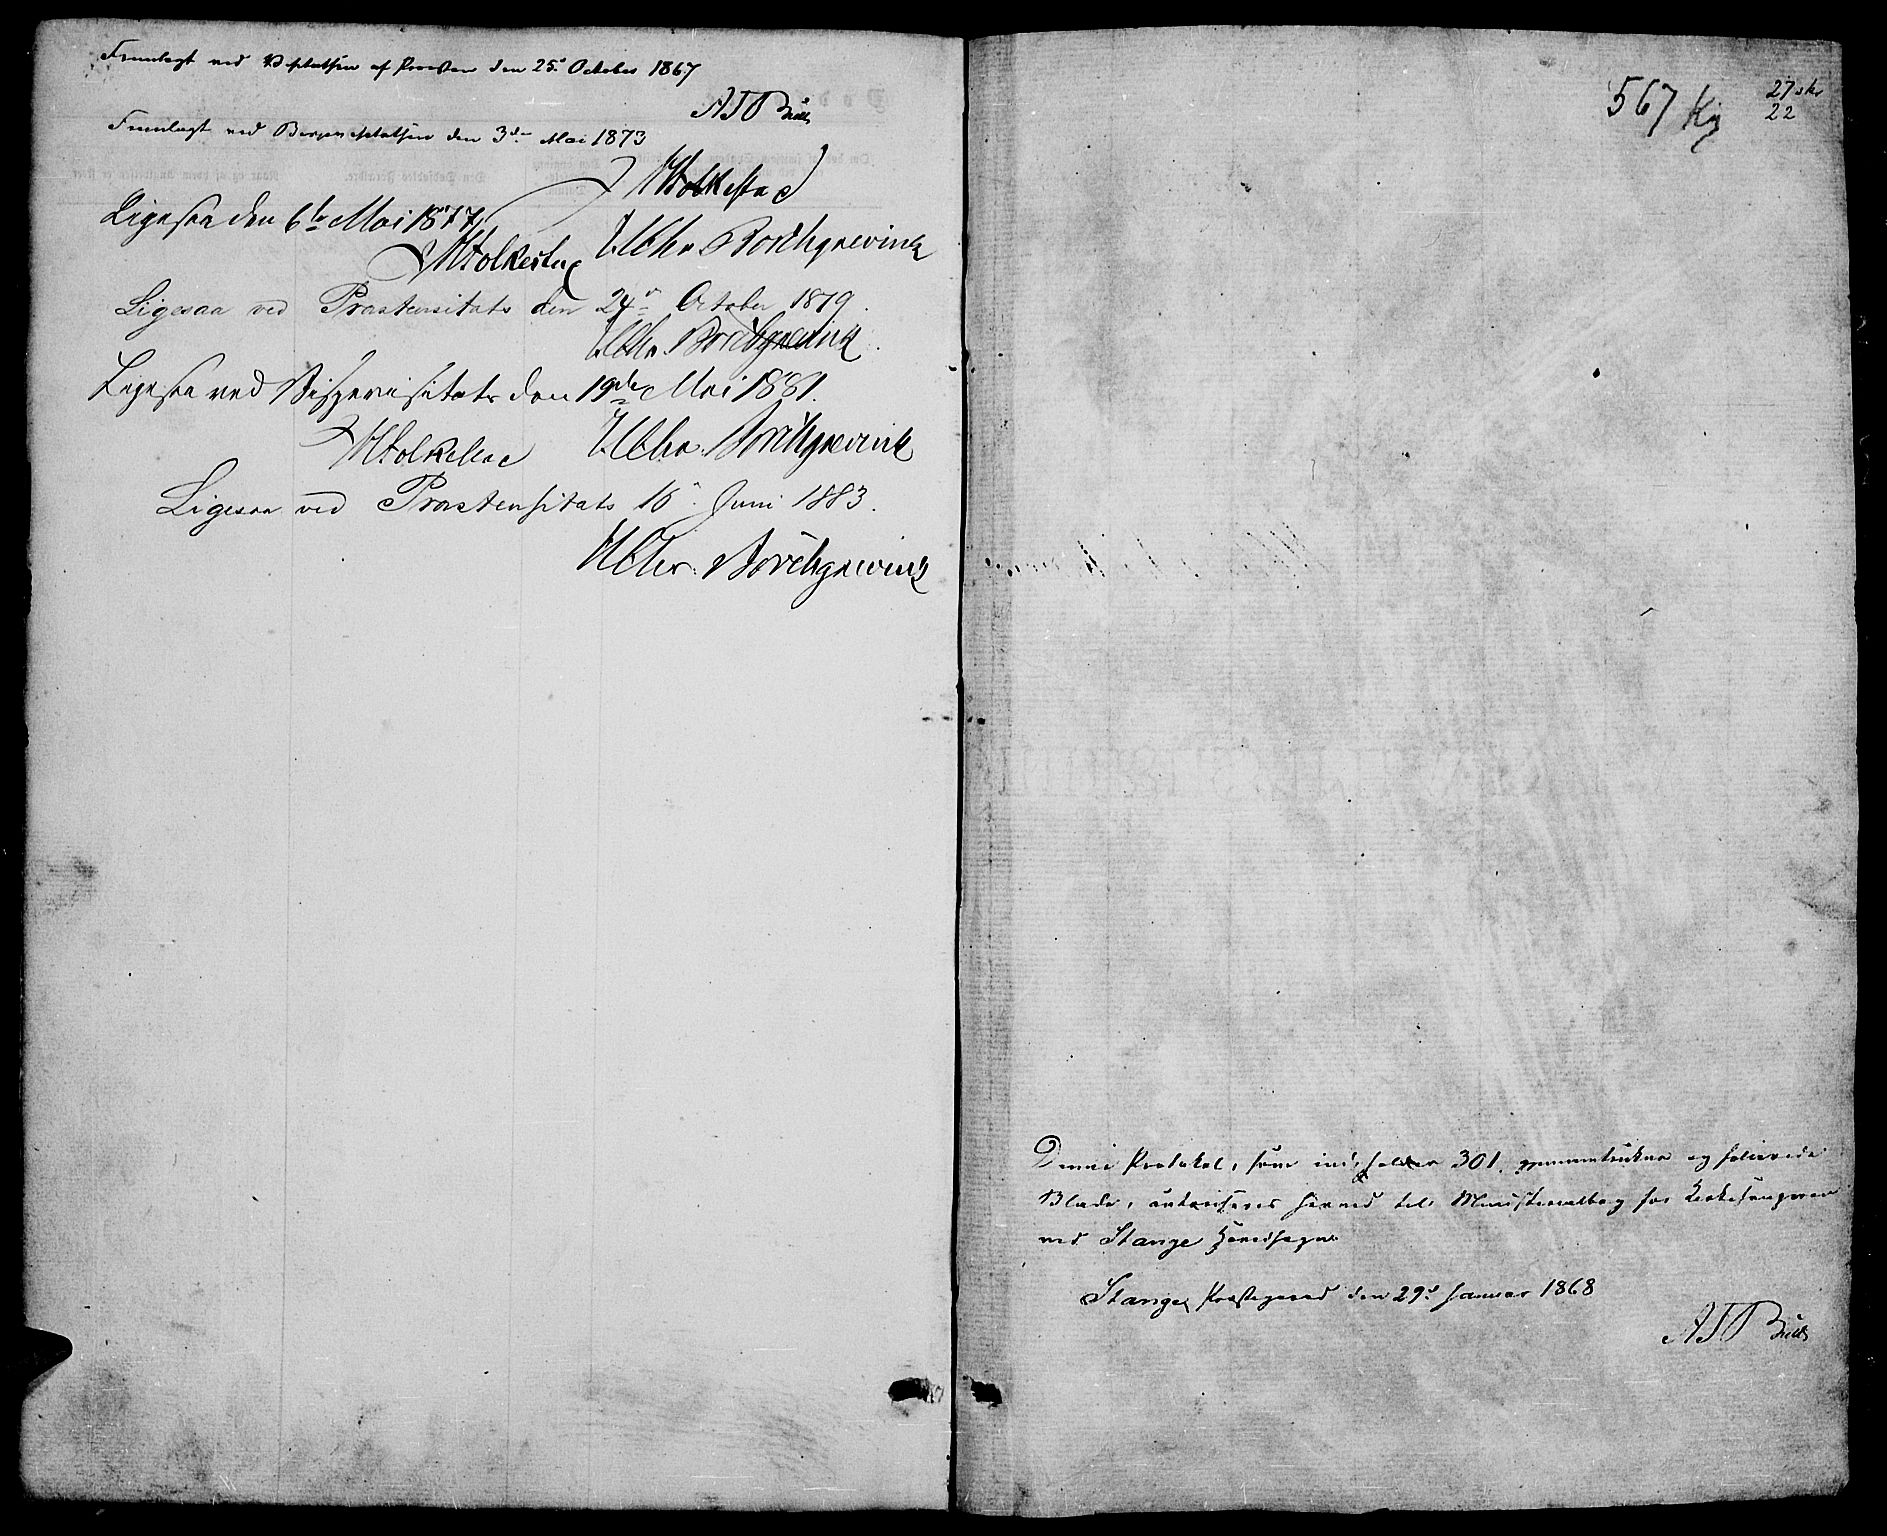 Fremlagt ved Visitatsen af Provsten den 25d October 1867
ATP Bull
Fremlagt ved Bispevisitatsen den 3die Mai 1873
H Folkestad
Ligesaa den 6te Mai 1877
H Folkestad H Chr. Borchgrevink
Ligesaa ved Provstevisitats den 24de October 1879.
H Chr. Borchgrevink.
Ligesaa ved Bispevisitats den 19de Mai 1881.
H Folkestad H Chr. Borchgrevink
Ligesaa ved Provstevisitats 16de Juni 1883.
H Chr. Borchgrevink
567
27 skr
22
Denne Protokol, som indeholder 301, gjennemtrukne og folierede
Blade, autoriseres herved til Ministerialbog for Kirkesangeren
ved Stange Hovedsogn.
Stange Præstegaard den 29d Januar 1868
ATP Bull